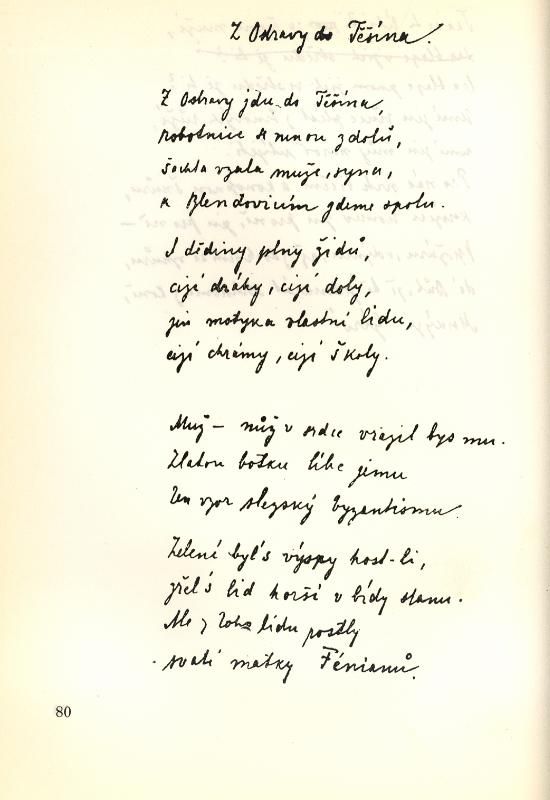 Z Ostravy do Těšína.
Z Ostravy jdu do Těšína,
robotnice se mnou z dolů,
šachta vzala muže, syna,
k Blendovicím gdeme spolu.
I dědiny plny židů,
cizí dráhy, cizí doly,
jen motyka vlastní lidu,
cizí chrámy, cizí školy.
Muž – nůž v srdce vrazil bys mu.
Zlatou botku líbe jemu
Ten vzor slezský byzantismu.
Zelené byl's výspy host-li,
zřel's lid horší v bídy stanu.
Ale z toho lidu postly
svaté matky Féniánů.
80